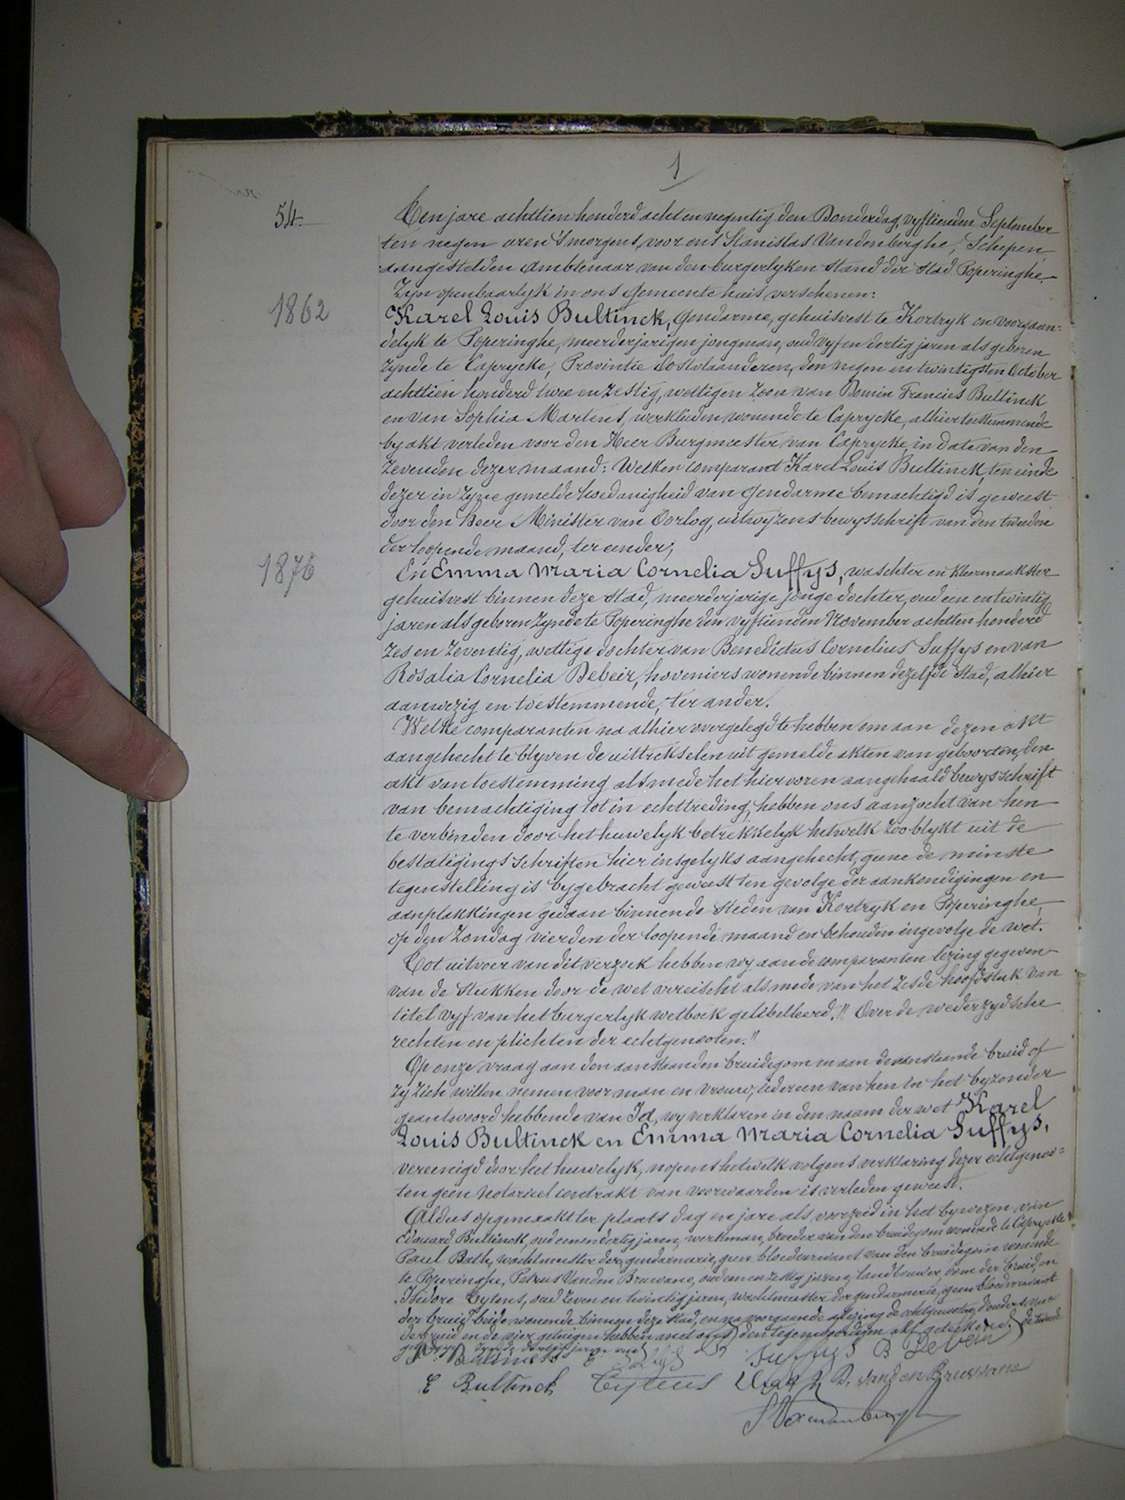 1
54.
Ten jare achttien honderd acht en negentig den Donderdag, vyftienden September
ten negen uren 's morgens, voor ons Stanislas Vandenberghe, Schepen,
aangestelden ambtenaar van den burgerlyken stand der stad Poperinghe.
Zyn openbaarlyk in ons Gemeentehuis verschenen:
1862
Karel Louis Bultinck, Gendarme, gehuisvest te Kortryk en voorgaan=
delyk te Poperinghe, meerderjarigen jongman, oud vyf en dertig jaren als geboren
zynde te Caprycke, Provintie Oostvlaanderen, den negen en twintigsten October
achttien honderd twee en zestig, wettigen zoon van Francies Bultinck
en van Sophia Martens, werklieden, wonende te Caprycke, alhier toestemmende
by akt verleden voor den Heer Burgmeester van Caprycke, in data van den
zevenden dezer maand: Welken comparant Karel Louis Bultinck, ten einde
dezer in zyne gemelde hoedanigheid van Gendarme bemachtigd is geweest
door den Heer Minister van Oorlog, uitwyzens bewysschrift van den tweeden
der loopende maand, ter eender;
1876
En Emma Maria Cornelia Suffys, waschter en kleermaakster
gehuisvest binnen deze stad, meerderjarige jonge dochter, oud een en twintig
jaren als geboren zynde te Poperinghe den vyftienden November achttien honderd
zes en zeventig, wettige dochter van Benedictus Cornelius Suffys en van
Rosalia Cornelia Debeir, hoveniers wonende binnen dezelfde stad, alhier
aanwezig en toestemmende, ter ander.
Welke comparanten na alhier voorgelegd te hebben om aan dezen akt
aangehecht te blyven de uittrekselen uit gemelde akten van geboorten, den
akt van toestemming alsmede het hiervoren aangehaald bewysschrift
van bemachtiging tot in echttreding, hebben ons aanzocht van hen
te verbinden door het huwelyk betrekkelyk hetwelk zoo blykt uit de
bestatigingsschriften hier insgelyks aangehecht, geene de minste
tegenstelling is bygebracht geweest ten gevolge der aankondigingen en
aanplakkingen gedaan binnen de steden van Kortryk en Poperinghe,
op den Zondag vierden der loopende maand en behouden ingevolge de wet.
Tot uitvoer van dit verzoek hebben wy aan de comparanten lezing gegeven
van de stukken door de wet vereischt alsmede van het zesde hoofdstuk van
titel vyf van het burgerlyk wetboek gelibelleerd: "Over de wederzydsche
rechten en plichten der echtgenooten."
Op onze vraag aan den aanstaanden bruidegom en aan de aanstaande bruid of
zy zich willen nemen voor man en vrouw, iedereen van hen in het byzonder
geantwoord hebbende van Ja, wy verklaren in den naam der wet Karel
Louis Bultinck en Emma Maria Cornelia Suffys,
vereenigd door het huwelyk, nopens hetwelk volgens verklaring dezer echtgenoo=
ten geen notarieel contrakt van voorwaarden is verleden geweest.
Aldus opgemaakt ter plaats dag en jare als voorzeid in het bywezen van
Eduard Bultinck, oud een en dertig jaren, werkman, broeder van den bruidegom wonende te Caprycke
Paul Bath, wachtmeester der gendarmerie, geen bloedverwant van den bruidegom wonende
te Poperinghe, Petrus Vanden Bruwaene, oud een en zestig jaren, landbouwer, oom der bruid en
Isidore Cytens, oud zeven en twintig jaren, wachtmeester der gendarmerie, geen bloedverwant
der bruid, beide wonende binnen deze stad, en na voorgaande lezing de echtgenooten, de ouders van
de bruid en de vier getuigen hebben met ons den tegenwoordigen akt geteekend
Bultinck Suffys Suffys R Debeir
E Bultinck Cytens Bath P. Vanden Bruwaene
S Vandenberghe